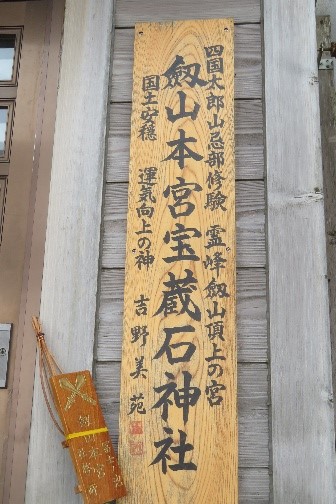 四国太郎山忌部修験 霊峰劔山頂上の宮
劔山本宮宝蔵石神社
国土安穏 運気向上の"神"
吉野美苑